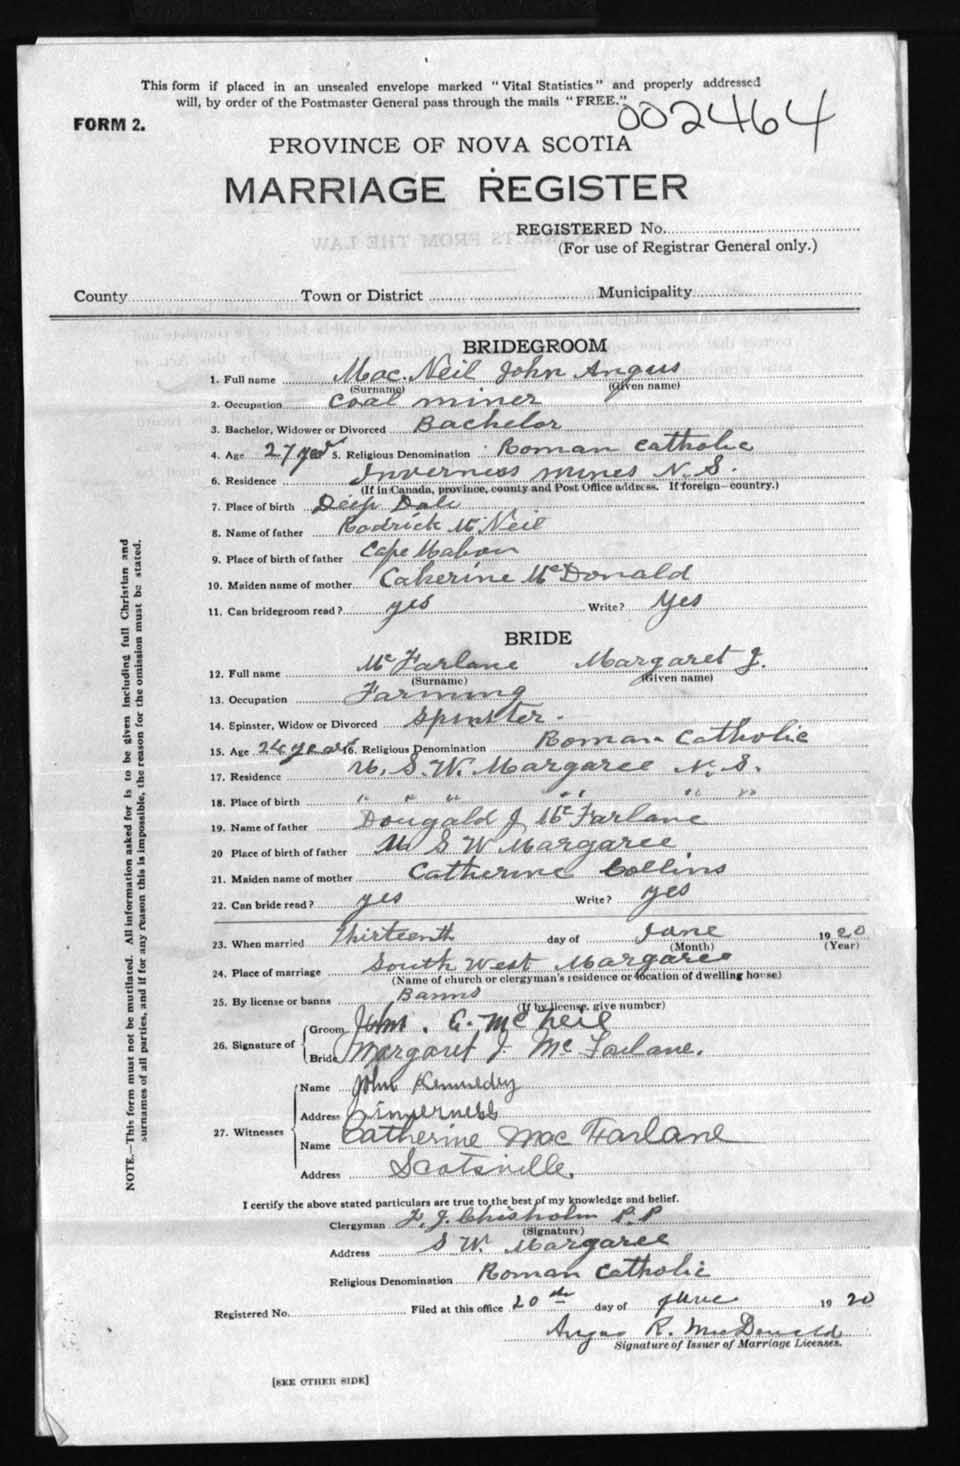 This form if placed in an unsealed envelope marked "Vital Statistics" and properly addressed
will, by order of the Postmaster General pass through the mails "FREE."
002464
FORM 2.
PROVINCE OF NOVA SCOTIA
MARRIAGE REGISTER
REGISTERED No.
(For use of Registrar General only.)
County Town or District Municipality
BRIDEGROOM
1. Full name Mac Neil John Angus
(Surname) (Given name)
2. Occupation Coal miner
3. Bachelor, Widower or Divorced Bachelor
4. Age 27 years 5. Religious Denomination Roman Catholic
6. Residence Inverness mines N.S.
(If in Canada, province, county and Post Office address. If foreign—country.)
7. Place of birth Deep Dale
8. Name of father Rodrick McNeil
9. Place of birth of father Cape Mabou
10. Maiden name of mother Catherine McDonald
11. Can bridegroom read? yes Write? Yes
BRIDE
12. Full name McFarlane Margaret J.
(Surname) (Given name)
13. Occupation Farming
14. Spinster, Widow or Divorced Spinster.
15. Age 24 years 16. Religious Denomination Roman Catholic
17. Residence U. S. W. Margaree N. S.
18. Place of birth " " " " " "
19. Name of father Dougald J McFarlane
20 Place of birth of father U S W Margaree
21. Maiden name of mother Catherine Collins
22. Can bride read? yes Write? yes
23. When married Thirteenth day of June 1920
(Month) (Year)
24. Place of marriage South West Margaree
(Name of church or clergyman's residence or location of dwelling house)
25. By license or banns Banns
(If by license, give number)
26. Signature of Groom John. A. McNeil
Bride Margaret J. McFarlane.
27. Witnesses Name John Kennedy
Address Inverness
Name Catherine Mac Farlane
Address Scotsville.
I certify the above stated particulars are true to the best of my knowledge and belief.
Clergyman J. J. Chisholm P.P
(Signature)
Address S W. Margaree
Religious Denomination Roman Catholic
Registered No. Filed at this office 20th day of June 1920
Angus R. MacDonald
Signature of Issuer of Marriage Licenses.
[SEE OTHER SIDE]
NOTE.—This form must not be mutilated. All information asked for is to be given including full Christian and
surnames of all parties, and if for any reason this is impossible, the reason for the omission must be stated.